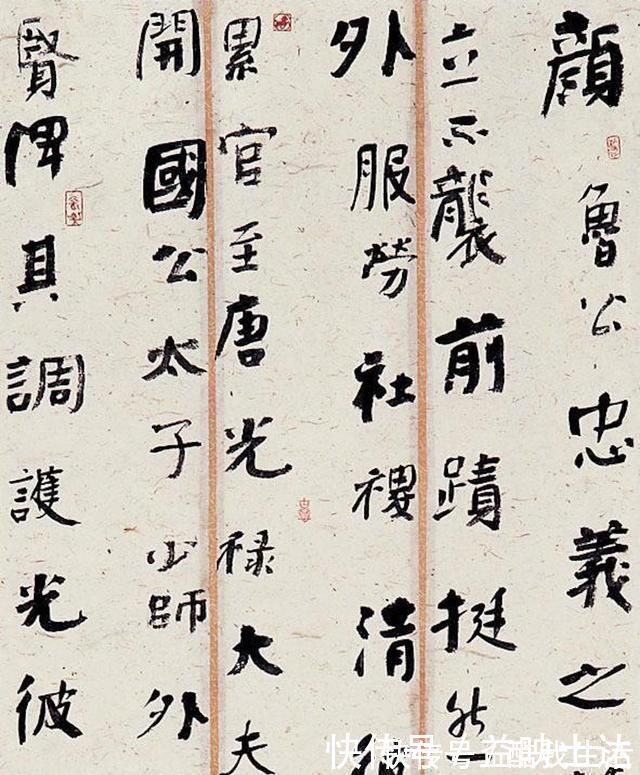 顏魯公忠義之
立不襲前蹟挺然
外服勞社稷清
累官至唐光祿大夫
開國公太子少師外
賢俾其調護光彼
快传号